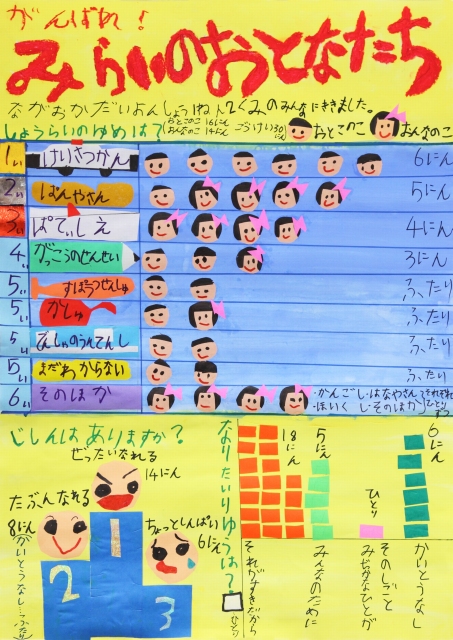 がんばれ!
みらいのおとなたち
ながおかだいよんしょう1ねん2くみのみんなにききました。
しょうらいのゆめは?
おとこのこ 16にん
おんなのこ 14にん
ごうけい30にん
おとこのこ
おんなのこ
1い けいさつかん 6にん
2い ぱんやさん 5にん
3い ぱてぃしえ 4にん
4い がっこうのせんせい 3にん
5い すぽーつせんしゅ ふたり
5い かしゅ ふたり
5い でんしゃのうんてんし ふたり
5い まだわからない ふたり
6い そのほか
・かんごし・はなやさん
・ほいくし・そのほか
それぞれ
ひとりずつ
じしんはありますか?
ぜったいなれる
14にん
たぶんなれる
8にん
ちょっとしんぱい
6にん
かいとうなし…ふたり
1
2
3
なりたいりゆうは?
18にん
5にん
ひとり
6にん
それがすきだから
みんなのために
みぢかなひとが
そのしごと
かいとうなし
ひとり